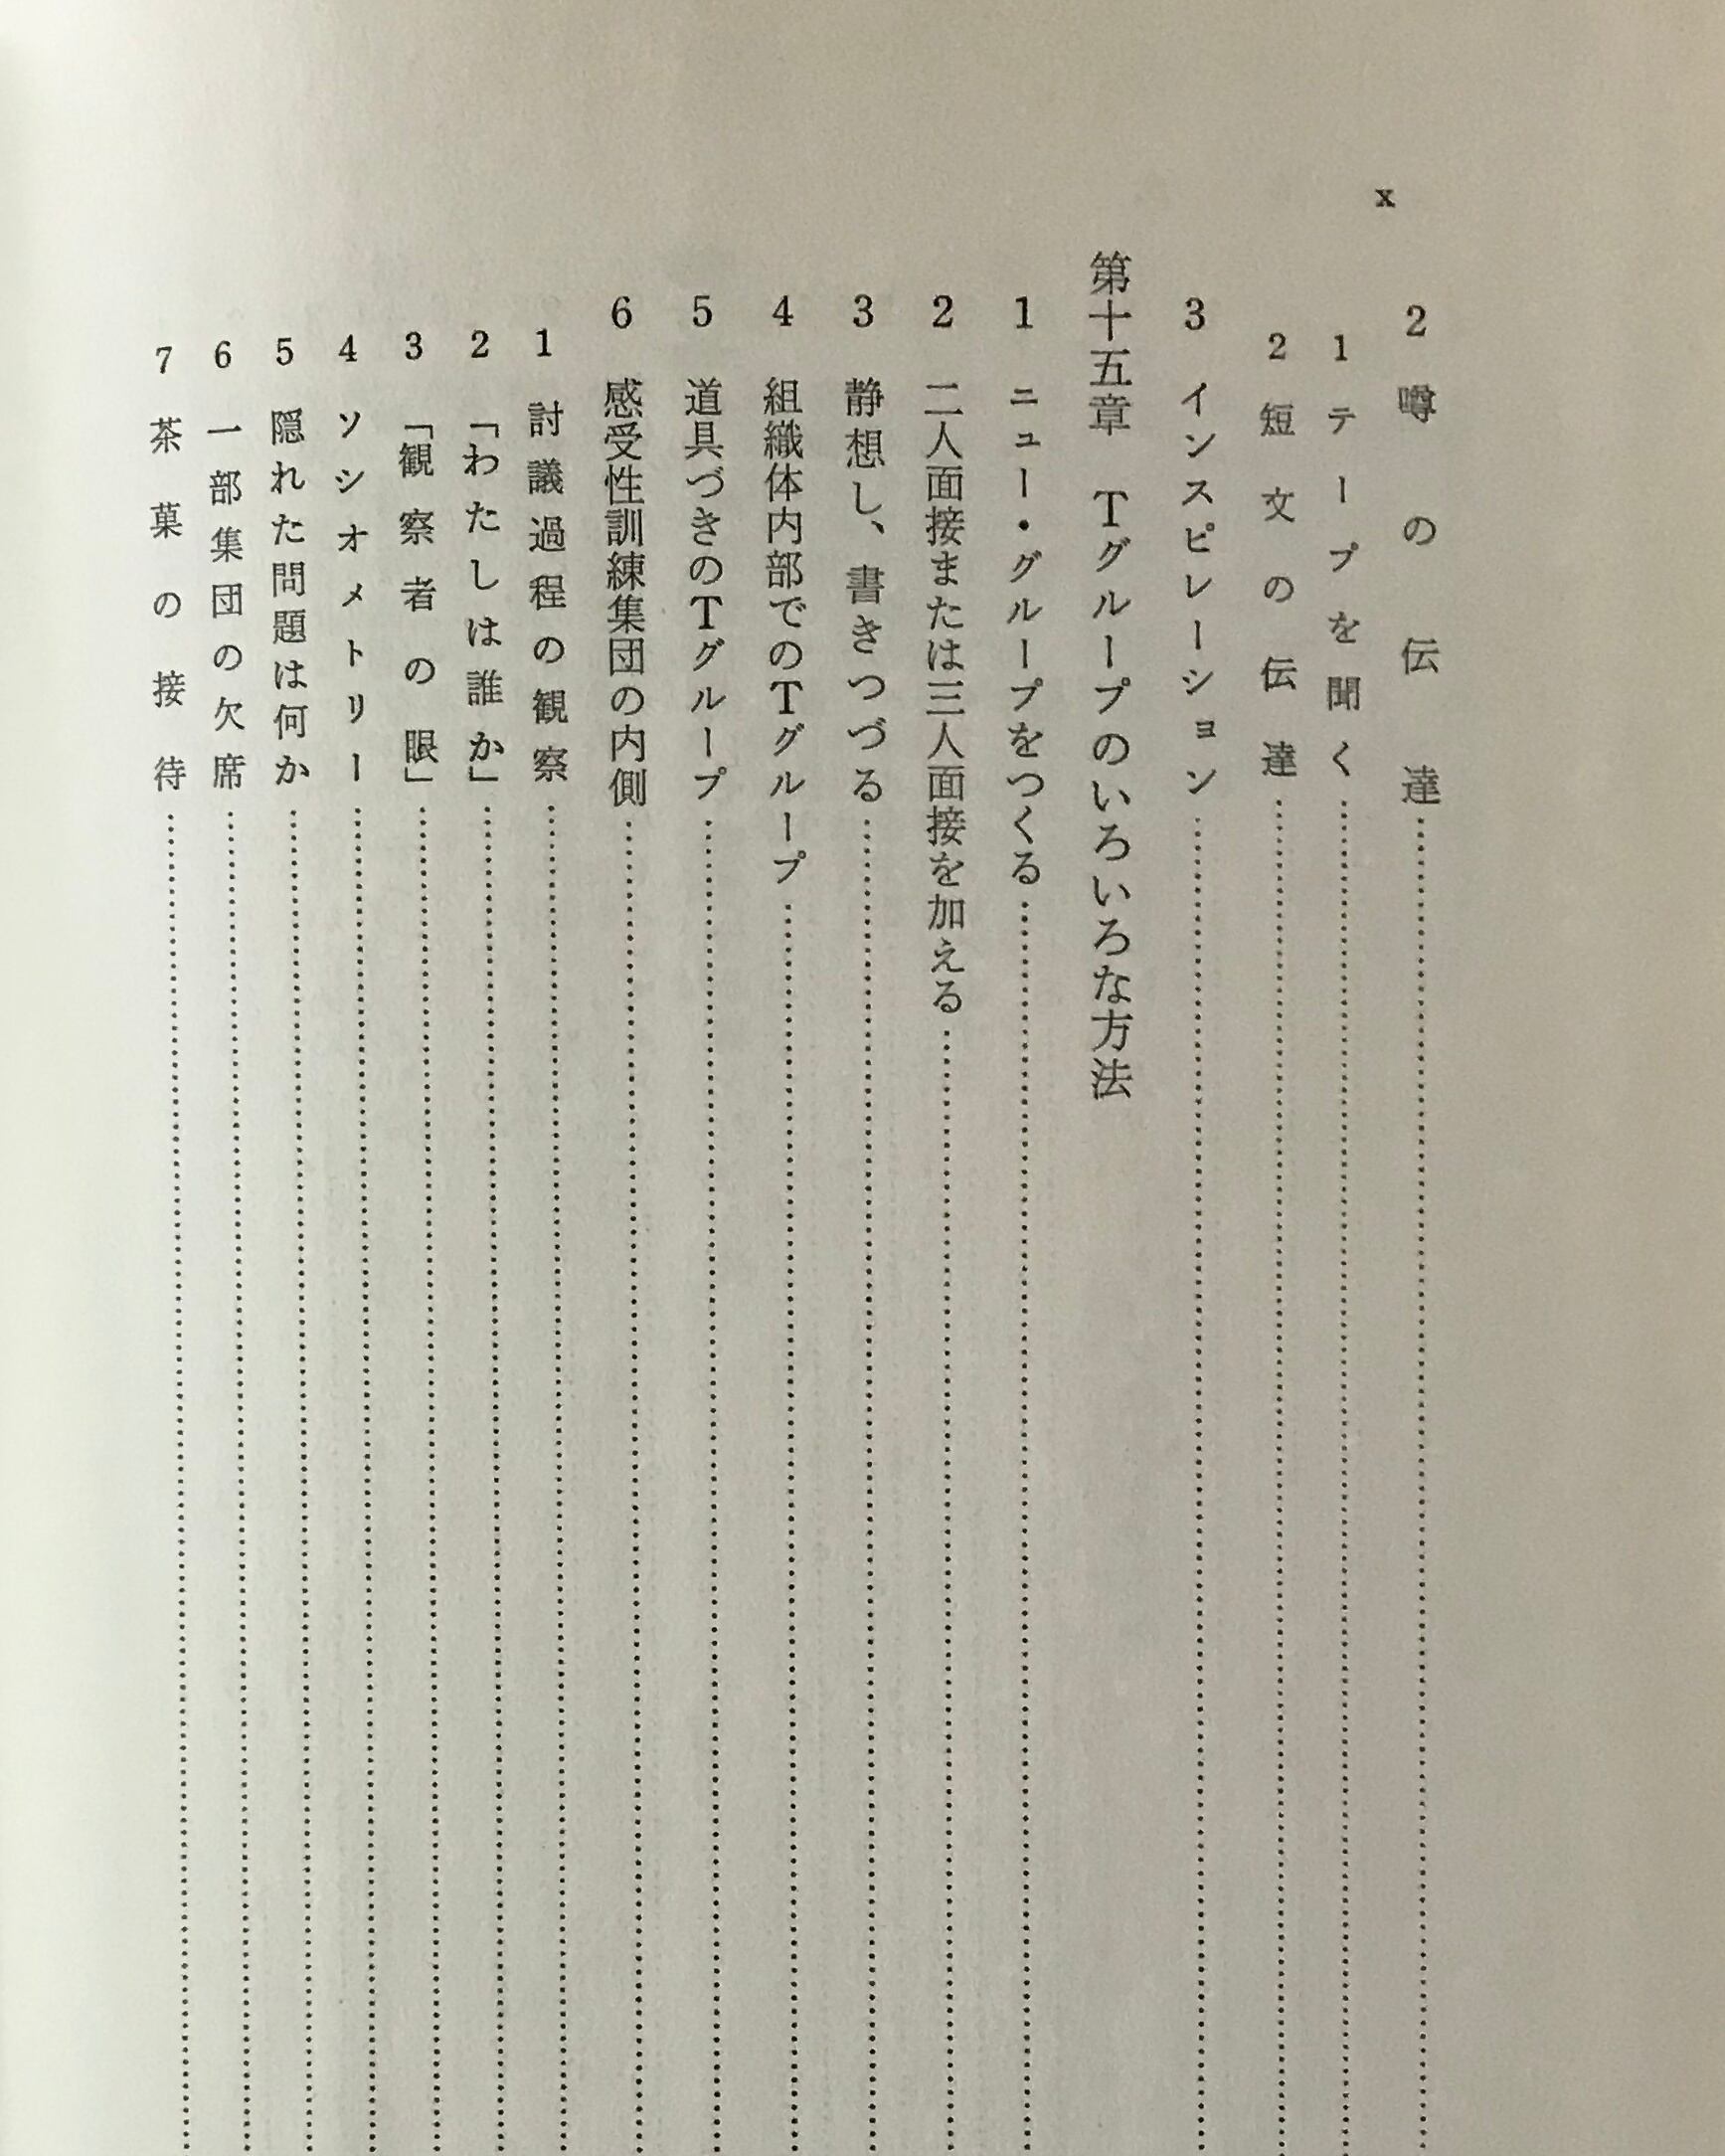 x
2 噂の伝達
1 テープを聞く
2 短文の伝達
3 インスピレーション
第十五章 Tグループのいろいろな方法
1 ニュー・グループをつくる
2 二人面接または三人面接を加える
3 静想し、書きつづる
4 組織体内部でのTグループ
5 道具づきのTグループ
6 感受性訓練集団の内側
1 討議過程の観察
2 「わたしは誰か」
3 「観察者の眼」
4 ソシオメトリー
5 隠れた問題は何か
6 一部集団の欠席
7 茶菓の接待